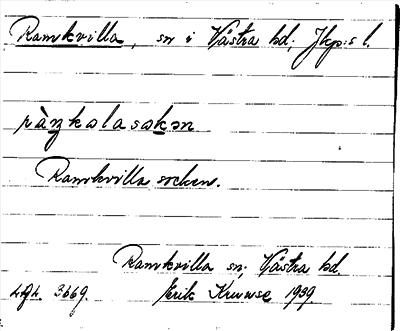 Ramkvilla, sn i Västra hd; Jkp:s l.
ràŋkalasəkən
Ramkvilla socken.
Ramkvilla sn; Västra hd.
3669. Erik Kruuse 1939.